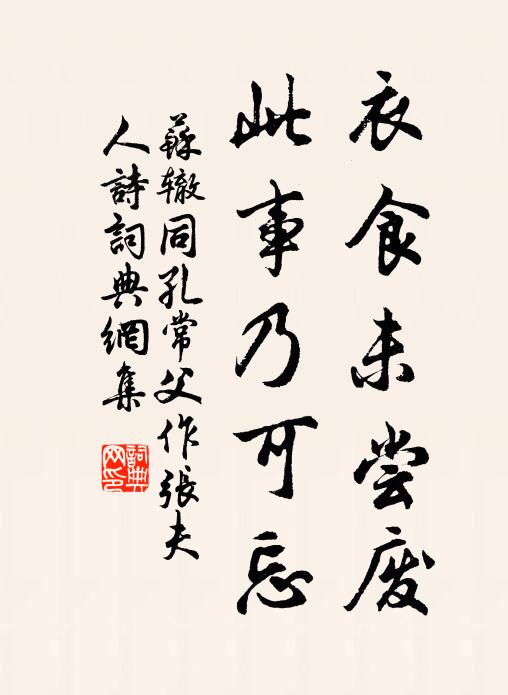 衣食未尝废
此事乃可忘
蘇辙同孔常父作張夫
人詩詞典網集
詞典网印